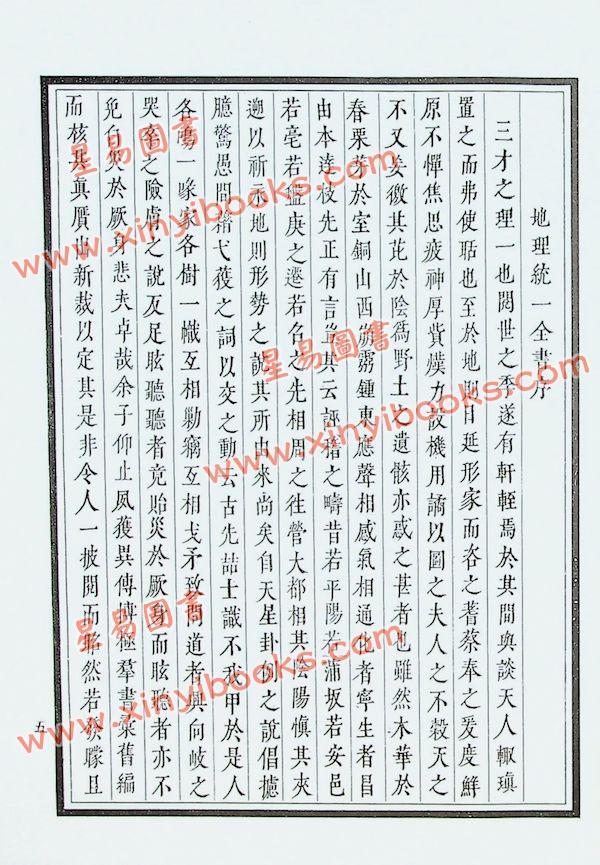 地理統一全書序
三才之理一也閱世之季遂有軒輊焉於其間與談天人輒瑱
置之而弗使聒也至於地則日延形家而咨之蓍蔡奉之爰度鮮
原不憚焦思疲神厚貲殫力設機用譎以圖之夫人之不穀天之
不又妄徼其芘於陰爲野土之遺骸亦惑之甚者也雖然木華於
春栗芽於室銅山西崩靈鍾東應聲相感氣相通化者寧生者昌
由本達枝先正有言豈其云誣稽之疇昔若平陽若蒲坂若安邑
若亳若盤庚之遷若名之先相周之徃營大都相其陰陽愼其夾
遡以祈永地則形勢之說其所由來尚矣自天星卦例之說倡攄
臆驚愚間籍弋獲之詞以文之動云古先喆士識不我甲於是人
各喙家各樹一幟互相勦竊互相戈矛致問道者興向岐之
哭牽之險膚之說及足眩聽聽者竟貽災於厥身而眩聽者亦不
免自災於厥身悲夫卓哉余子仰止夙獲異傳博極羣書彙舊編
而核其真贗出新裁以定其是非令人一披閱而犂然若發矇且
五
星易圖書
www.xinyibooks.com
星易圖書
www.xinyibooks.com
星易圖書
www.xinyibooks.com